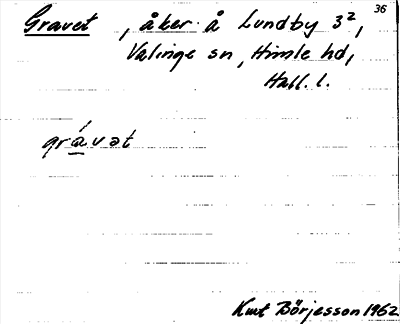 36
Gravet, åker å Lundby 3²,
Valinge sn, Himle hd,
Hall. l.
grávat
Kurt Börjesson 1962